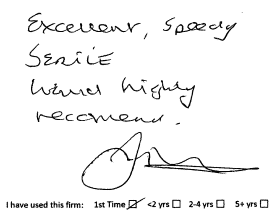 Excellent, Speedy
Service
Would highly
recomend.
I have used this firm: 1st Time ☑ <2 yrs ☐ 2-4 yrs ☐ 5+ yrs ☐